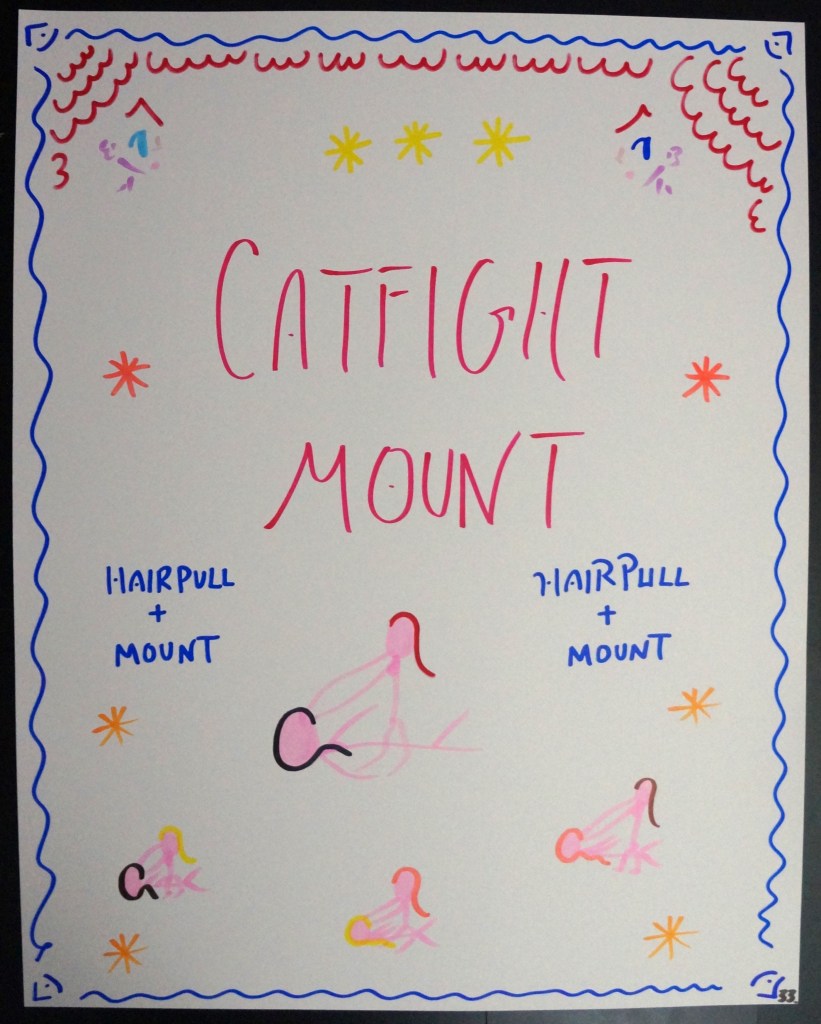 CATFIGHT
MOUNT
HAIRPULL
+
MOUNT
HAIRPULL
+
MOUNT
33